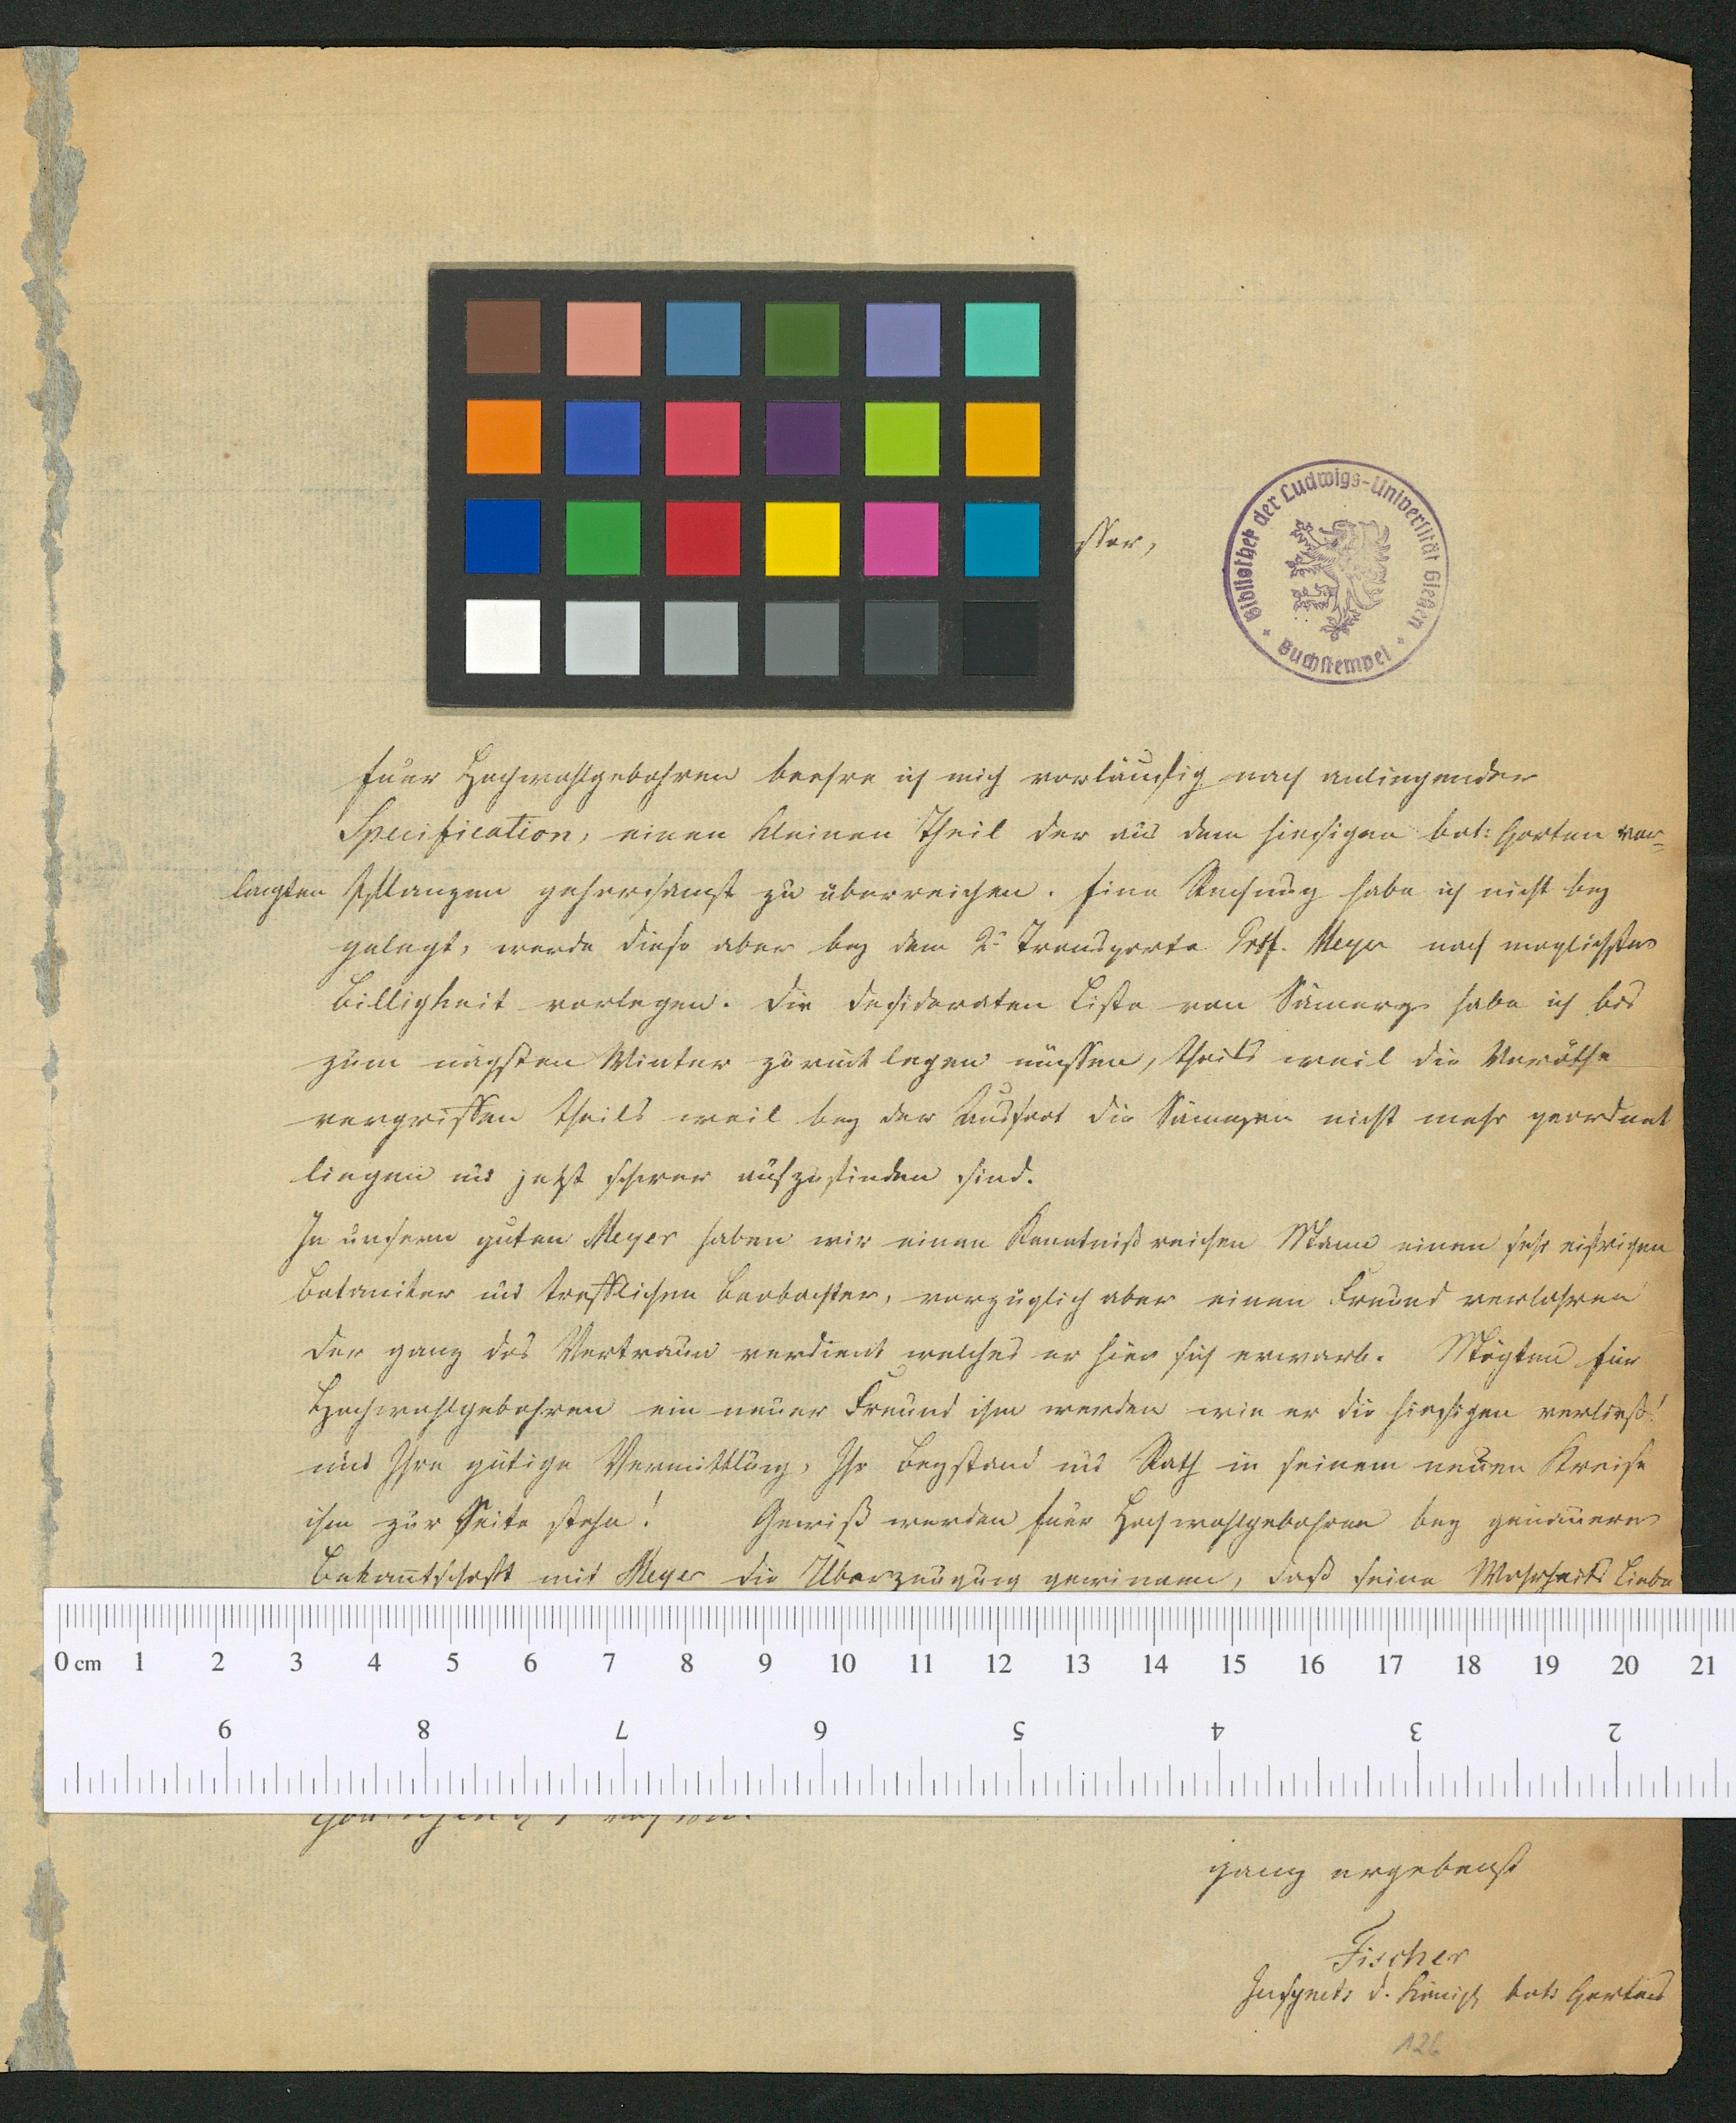 ssor,
Bibliothek der Ludwigs-Universität Gießen
Buchstempel
Euer Hochwohlgebohren beehre ich mich vorläufig nach anliegender
Specification, einen kleinen Theil der aus dem hiesigen bot: Garten ver-
langten Pflanzen gehorsamst zu überreichen. Eine Rechnung habe ich nicht bey
gelegt, werde diese aber bey dem 2t Transporte Prof. Meyer nach moglichster
Billigkeit vorlegen. Die Desideraten Liste von Sämerey habe ich bis
zum nägsten Winter zurück legen müssen, theils weil die Voräthe
vergriffen theils weil bey der Aussaat die Sämereyen nicht mehr geordnet
liegen und jetzt schwer aufzufinden sind.
In unserm guten Meyer haben wir einen Kenntnißreichen Mann einen sehr eifrigen
Botaniker und trefflichen Beobachter, vorzüglich aber einen Freund verlohren
der ganz das Vertraun verdient welches er hier sich erwarb. Mögten Eur
Hochwohlgebohren ein neuer Freund ihm werden wie er die hiesigen verließ!
und Ihre gütige Vermittlung, Ihr Beystand und Rath in seinem neuen Kreise
ihm zur Seite stehn! Gewiß werden Euer Hochwohlgebohren bey genauerer
Bekanntschaft mit Meyer die Überzeugung gewinnen, daß seine Wahrheits Liebe
0 cm 1 2 3 4 5 6 7 8 9 10 11 12 13 14 15 16 17 18 19 20 21
9 8 7 6 5 4 3 2
Göttingen
ganz ergebenst
Fischer
d. Königl bot: Gartens
126